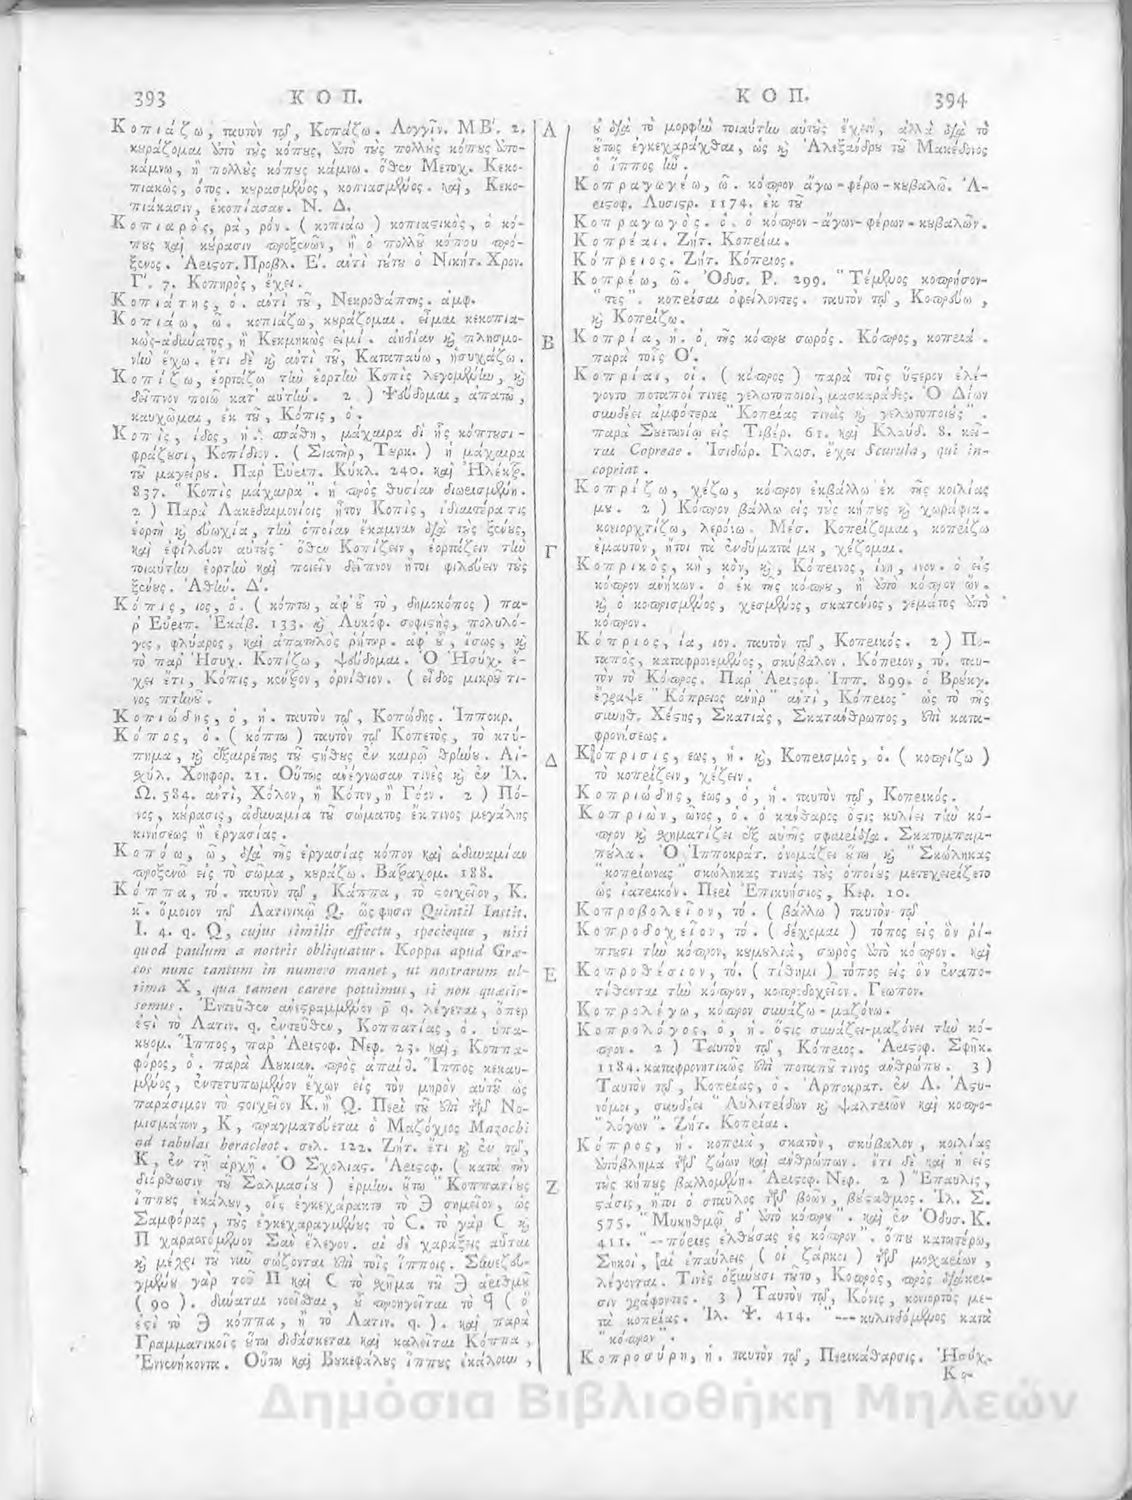 393 ΚΟΠ.
Κοπιάζω, ταυτὸν τῷ, Κοπάζω. Λογγῖν. ΜΒ'. 2.
κουράζομαι ὑπὸ τοὺς κόπους, ὑπὸ τοὺς πολλοὺς κόπους ἀπο-
κάμνω, ἢ πολλοὺς κόπους κάμνω. ὅθεν Μετοχ. Κεκο-
πιακὼς, ότος. κουρασμένος, κοπιασμένος. καὶ, Κεκο-
πιάκασιν, ἐκοπίασαν. Ν. Δ.
Κοπιαρός, ρὰ, ρόν. (κοπιάω) κοπιαστικὸς, ὁ κό-
πους καὶ κούρασιν προξενῶν, ἢ ὁ πολλοῦ κόπου πρό-
ξενος. Ἀριστοτ. Προβλ. Ε'. ἀντὶ τούτου ὁ Νικήτ. Χρον.
Γ'. 7. Κοπηρὸς, ἔχει.
Κοπιάτης, ὁ. ἀντὶ τοῦ, Νεκροθάπτης. ἀμφ.
Κοπιάω, ῶ. κοπιάζω, κουράζομαι. εἶμαι κεκοπια-
κὼς-ἀδύνατος, ἢ Κεκμηκὼς εἰμί. ἀηδίαν καὶ πλησμο-
νὴν ἔχω. ἔτι δὲ καὶ ἀντὶ τοῦ, Καταπαύω, ἡσυχάζω.
Κοπίζω, ἑορτάζω τὴν ἑορτὴν Κοπὶς λεγομένην, καὶ
δεῖπνον ποιῶ κατ' αὐτήν. 2) Ψεύδομαι, ἀπατῶ,
καυχῶμαι, ἐκ τοῦ, Κόπις, ὁ.
Κοπὶς, ίδος, ἡ. σπάθη, μάχαιρα δι' ἧς κόπτουσι-
σφάζουσι, Κοπίδιον. (Σιατήρ, Τουρκ.) ἢ μάχαιρα
τοῦ μαγείρου. Παρ' Εὐριπ. Κύκλ. 240. καὶ Ἠλέκτρ.
837. "Κοπὶς μάχαιρα". ἡ πρὸς θυσίαν διωρισμένη.
2) Παρὰ Λακεδαιμονίοις ἦτον Κοπὶς, ἰδιαιτέρα τις
ἑορτὴ καὶ εὐωχία, τὴν ὁποίαν ἔκαμναν διὰ τοὺς ξένους,
καὶ ἐφίλευον αὐτούς· ὅθεν Κοπίζειν, ἑορτάζειν τὴν
τοιαύτην ἑορτὴν καὶ ποιεῖν δεῖπνον ἤτοι φιλεύειν τοὺς
ξένους. Ἀθήν. Δ'.
Κόπις, ιος, ὁ. (κόπτω, ἀφ' οὗ τὸ, δημοκόπος) πα-
ρ' Εὐριπ. Ἑκάβ. 133. καὶ Λυκόφ. σοφιστὴς, πολυλό-
γος, φλύαρος, καὶ ἀπατηλὸς ῥήτωρ. ἀφ' οὗ, ἴσως, καὶ
τὸ παρ' Ἡσυχ. Κοπίζω, ψεύδομαι. Ὁ Ἡσύχ. ἔ-
χει ἔτι, Κόπις, κέντρον, ὀρνίθιον. (εἶδος μικροῦ τι-
νος πτηνοῦ.
Κοπιώδης, ὁ, ἡ. ταυτὸν τῷ, Κοπώδης. Ἱπποκρ.
Κόπος, ὁ. (κόπτω) ταυτὸν τῷ Κοπετὸς, τὸ κτύ-
πημα, καὶ ἐξαιρέτως τοῦ στήθους ἐν καιρῷ θρήνου. Αἰ-
σχύλ. Χοηφορ. 21. Οὕτως ἀνέγνωσαν τινὲς καὶ ἐν Ἰλ.
Ω. 584. ἀντὶ, Χόλον, ἢ Κόπον, ἢ Γόον. 2) Πό-
νος, κούρασις, ἀδυναμία τοῦ σώματος ἔκ τινος μεγάλης
κινήσεως ἢ ἐργασίας.
Κοπόω, ῶ, διὰ τῆς ἐργασίας κόπον καὶ ἀδυναμίαν
προξενῶ εἰς τὸ σῶμα, κουράζω. Βατραχομ. 188.
Κόππα, τό. ταυτὸν τῷ, Κάππα, τὸ στοιχεῖον, Κ.
κ. ὅμοιον τῷ Λατινικῷ Q. ὥς φησιν Quintil Instit.
I. 4. q. Q, cujus similis effectu, specieque, nisi
quod paulum a nostris obliquatur. Koppa apud Græ-
cos nunc tantum in numero manet, ut nostrarum ul-
tima X, qua tamen carere potuimus, si non quæsis-
semus. Ἐντεῦθεν ἀντεστραμμένον ρ q. λέγεται, ὅπερ
ἐστὶ τὸ Λατιν. q. ἐντεῦθεν, Κοππατίας, ὁ. ὑπα-
κουομ. Ἵππος, παρ' Ἀριστοφ. Νεφ. 23. καὶ, Κοππα-
φόρος, ὁ. παρὰ Λουκιαν. πρὸς ἀπαίδ. Ἵππος κεκαυ-
μένος, ἐντετυπωμένον ἔχων εἰς τὸν μηρὸν αὐτοῦ ὡς
παράσιμον τὸ στοιχεῖον Κ. ἢ Q. Περὶ τοῦ ἐπὶ τῶν Νο-
μισμάτων, Κ, πραγματεύεται ὁ Μαζόχιος Mazochi
ad tabulas heracleot. σελ. 122. Ζήτ. ἔτι καὶ ἐν τῷ,
Κ, ἐν τῇ ἀρχῇ. Ὁ Σχολιαστ. Ἀριστοφ. (κατὰ τὴν
διόρθωσιν τοῦ Σαλμασίου) ἑρμην. οὕτω "Κοππατίους
ἵππους ἐκάλουν, οἷς ἐγκεχάρακτο τὸ Ϟ σημεῖον, ὡς
Σαμφόρας, τοὺς ἐγκεχαραγμένους τὸ C. τὸ γὰρ C καὶ
Π χαρασσόμενον Σὰν ἔλεγον. αἱ δὲ χαράξεις αὗται
καὶ μέχρι τοῦ νῦν σώζονται ἐπὶ τοῖς ἵπποις. Συνεζευ-
γμένου γὰρ τοῦ Π καὶ C τὸ σχῆμα τοῦ Ϡ ἀριθμοῦ
(90). δύναται νοεῖσθαι, οὗ προηγεῖται τὸ Ϥ (ὅ
ἐστι τὸ Ϟ κόππα, ἢ τὸ Λατιν. q.). καὶ παρὰ
Γραμματικοῖς οὕτω διδάσκεται καὶ καλεῖται Κόππα,
Ἐννενήκοντα. Οὕτω καὶ Βουκεφάλους ἵππους ἐκάλουν,
Α
Β
Γ
Δ
Ε
Ζ
ΚΟΠ. 394
οὐ διὰ τὸ μορφὴν τοιαύτην αὐτοὺς ἔχειν, ἀλλὰ διὰ τὸ
οὕτως ἐγκεχαράχθαι, ὡς καὶ Ἀλεξάνδρου τοῦ Μακεδόνος
ὁ ἵππος ἦν.
Κοπραγωγέω, ῶ. κόπρον ἄγω-φέρω-κουβαλῶ. Ἀ-
ριστοφ. Λυσιστρ. 1174. ἐκ τοῦ
Κοπραγωγὸς. ὁ. ὁ κόπρον-ἄγων-φέρων-κουβαλῶν.
Κοπρέαι. Ζήτ. Κοπρίαι.
Κόπρειος. Ζήτ. Κόπριος.
Κοπρέω, ῶ. Ὀδυσ. Ρ. 299. "Τέμενος κοπρήσον-
"τες". κοπρίσαι ὀφείλοντες. ταυτὸν τῷ, Κοπρεύω,
καὶ Κοπρίζω.
Κοπρία, ἡ. ὁ τῆς κόπρου σωρός. Κόπρος, κοπριά.
παρὰ τοῖς Ο'.
Κοπρίαι, οἱ. (κόπρος) παρὰ τοῖς ὕστερον ἐλέ-
γοντο ποταποί τινες γελωτοποιοί, μασκαράδες. Ὁ Δίων
συνδέει ἀμφότερα "Κοπρίας τινὰς καὶ γελωτοποιούς".
παρὰ Σουετωνίῳ εἰς Τιβέρ. 61. καὶ Κλαυδ. 8. κεῖν-
ται Copreae. Ἰσιδώρ. Γλωσ. ἔχει Scurula, qui in-
copriat.
Κοπρίζω, χέζω, κόπρον ἐκβάλλω ἐκ τῆς κοιλίας
μου. 2) Κόπρον βάλλω εἰς τοὺς κήπους καὶ χωράφια.
κονιορχτίζω, λερόνω. Μέσ. Κοπρίζομαι, κοπρίζω
ἐμαυτὸν, ἤτοι τὰ ἐνδύματά μου, χέζομαι.
Κοπρικὸς, κὴ, κόν, καὶ, Κόπρινος, ίνη, ινον. ὁ εἰς
κόπρον ἀνήκων. ὁ ἐκ τῆς κόπρου, ἢ ἀπὸ κόπρον ὤν.
καὶ ὁ κοπρισμένος, χεσμένος, σκατένιος, γεμάτος ἀπὸ
κόπρον.
Κόπριος, ία, ιον. ταυτὸν τῷ, Κοπρικός. 2) Πο-
ταπὸς, καταφρονεμένος, σκύβαλον. Κόπριον, τό. ταυ-
τὸν τὸ Κόπρος. Παρ' Ἀριστοφ. Ἱππ. 899. ὁ Βρύκγ.
ἔγραψε "Κόπρειος ἀνὴρ" ἀντὶ, Κόπριος· ὡς τὸ τῆς
συνηθ. Χέστης, Σκατιὰς, Σκατάνθρωπος, ἐπὶ κατα-
φρονήσεως.
Κόπρισις, εως, ἡ. καὶ, Κοπρισμὸς, ὁ. (κοπρίζω)
τὸ κοπρίζειν, χέζειν.
Κοπριώδης, εως, ὁ, ἡ. ταυτὸν τῷ, Κοπρικός.
Κοπρίων, ωνος, ὁ. ὁ κάνθαρος ὅστις κυλίει τὴν κό-
προν καὶ σχηματίζει ἐξ αὐτῆς σφαιρίδια. Σκατομπαμ-
πούλα. Ὁ Ἱπποκράτ. ὀνομάζει οὕτω καὶ "Σκώληκας
"κοπρίωνας" σκώληκας τινὰς τοὺς ὁποίους μετεχειρίζετο
ὡς ἰατρικόν. Περὶ Ἐπικυήσιος, Κεφ. 10.
Κοπροβολεῖον, τό. (βάλλω) ταυτὸν τῷ
Κοπροδοχεῖον, τό. (δέχομαι) τόπος εἰς ὃν ῥί-
πτουσι τὴν κόπρον, κουμουλιὰ, σωρὸς ἀπὸ κόπρον. καὶ
Κοπροθέσιον, τό. (τίθημι) τόπος εἰς ὃν ἐναπο-
τίθενται τὴν κόπρον, κοπροδοχεῖον. Γεωπον.
Κοπρολέγω, κόπρον συνάζω-μαζόνω.
Κοπρολόγος, ὁ, ἡ. ὅστις συνάζει-μαζόνει τὴν κό-
προν. 2) Ταυτὸν τῷ, Κόπριος. Ἀριστοφ. Σφηκ.
1184. καταφρονητικῶς ἐπὶ ποταποῦ τινος ἀνθρώπου. 3)
Ταυτὸν τῷ, Κοπρίας, ὁ. Ἁρποκρατ. ἐν Λ. Ἀστυ-
νόμοι, συνδέει "Αὐλητρίδων καὶ ψαλτριῶν καὶ κοπρο-
"λόγων". Ζήτ. Κοπρίαι.
Κόπρος, ἡ. κοπριὰ, σκατὸν, σκύβαλον, κοιλίας
ἀπόβλημα τῶν ζώων καὶ ἀνθρώπων. ἔτι δὲ καὶ ἡ εἰς
τοὺς κήπους βαλλομένη. Ἀριστοφ. Νεφ. 2) Ἔπαυλις,
στάσις, ἤτοι ὁ σταῦλος τῶν βοῶν, βούσταθμος. Ἰλ. Σ.
575. "Μυκηθμῷ δ' ἀπὸ κόπρου". καὶ ἐν Ὀδυσ. Κ.
411. "--πόριες ἐλθούσας ἐς κόπρον". ὅπου κατωτέρω,
Σηκοὶ, αἱ ἐπαύλεις (οἱ ζάρκοι) τῶν μοσχαρίων,
λέγονται. Τινὲς ὀξύνουσι τοῦτο, Κοπρὸς, πρὸς διάκρι-
σιν γράφοντες. 3) Ταυτὸν τῷ, Κόνις, κονιορτὸς με-
τὰ κοπρίας. Ἰλ. Ψ. 414. "---κυλινδόμενος κατὰ
"κόπρον".
Κοπροσύρη, ἡ. ταυτὸν τῷ, Περικάθαρσις. Ἡσύχ.
Κο-
Δημόσια Βιβλιοθήκη Μηλεών